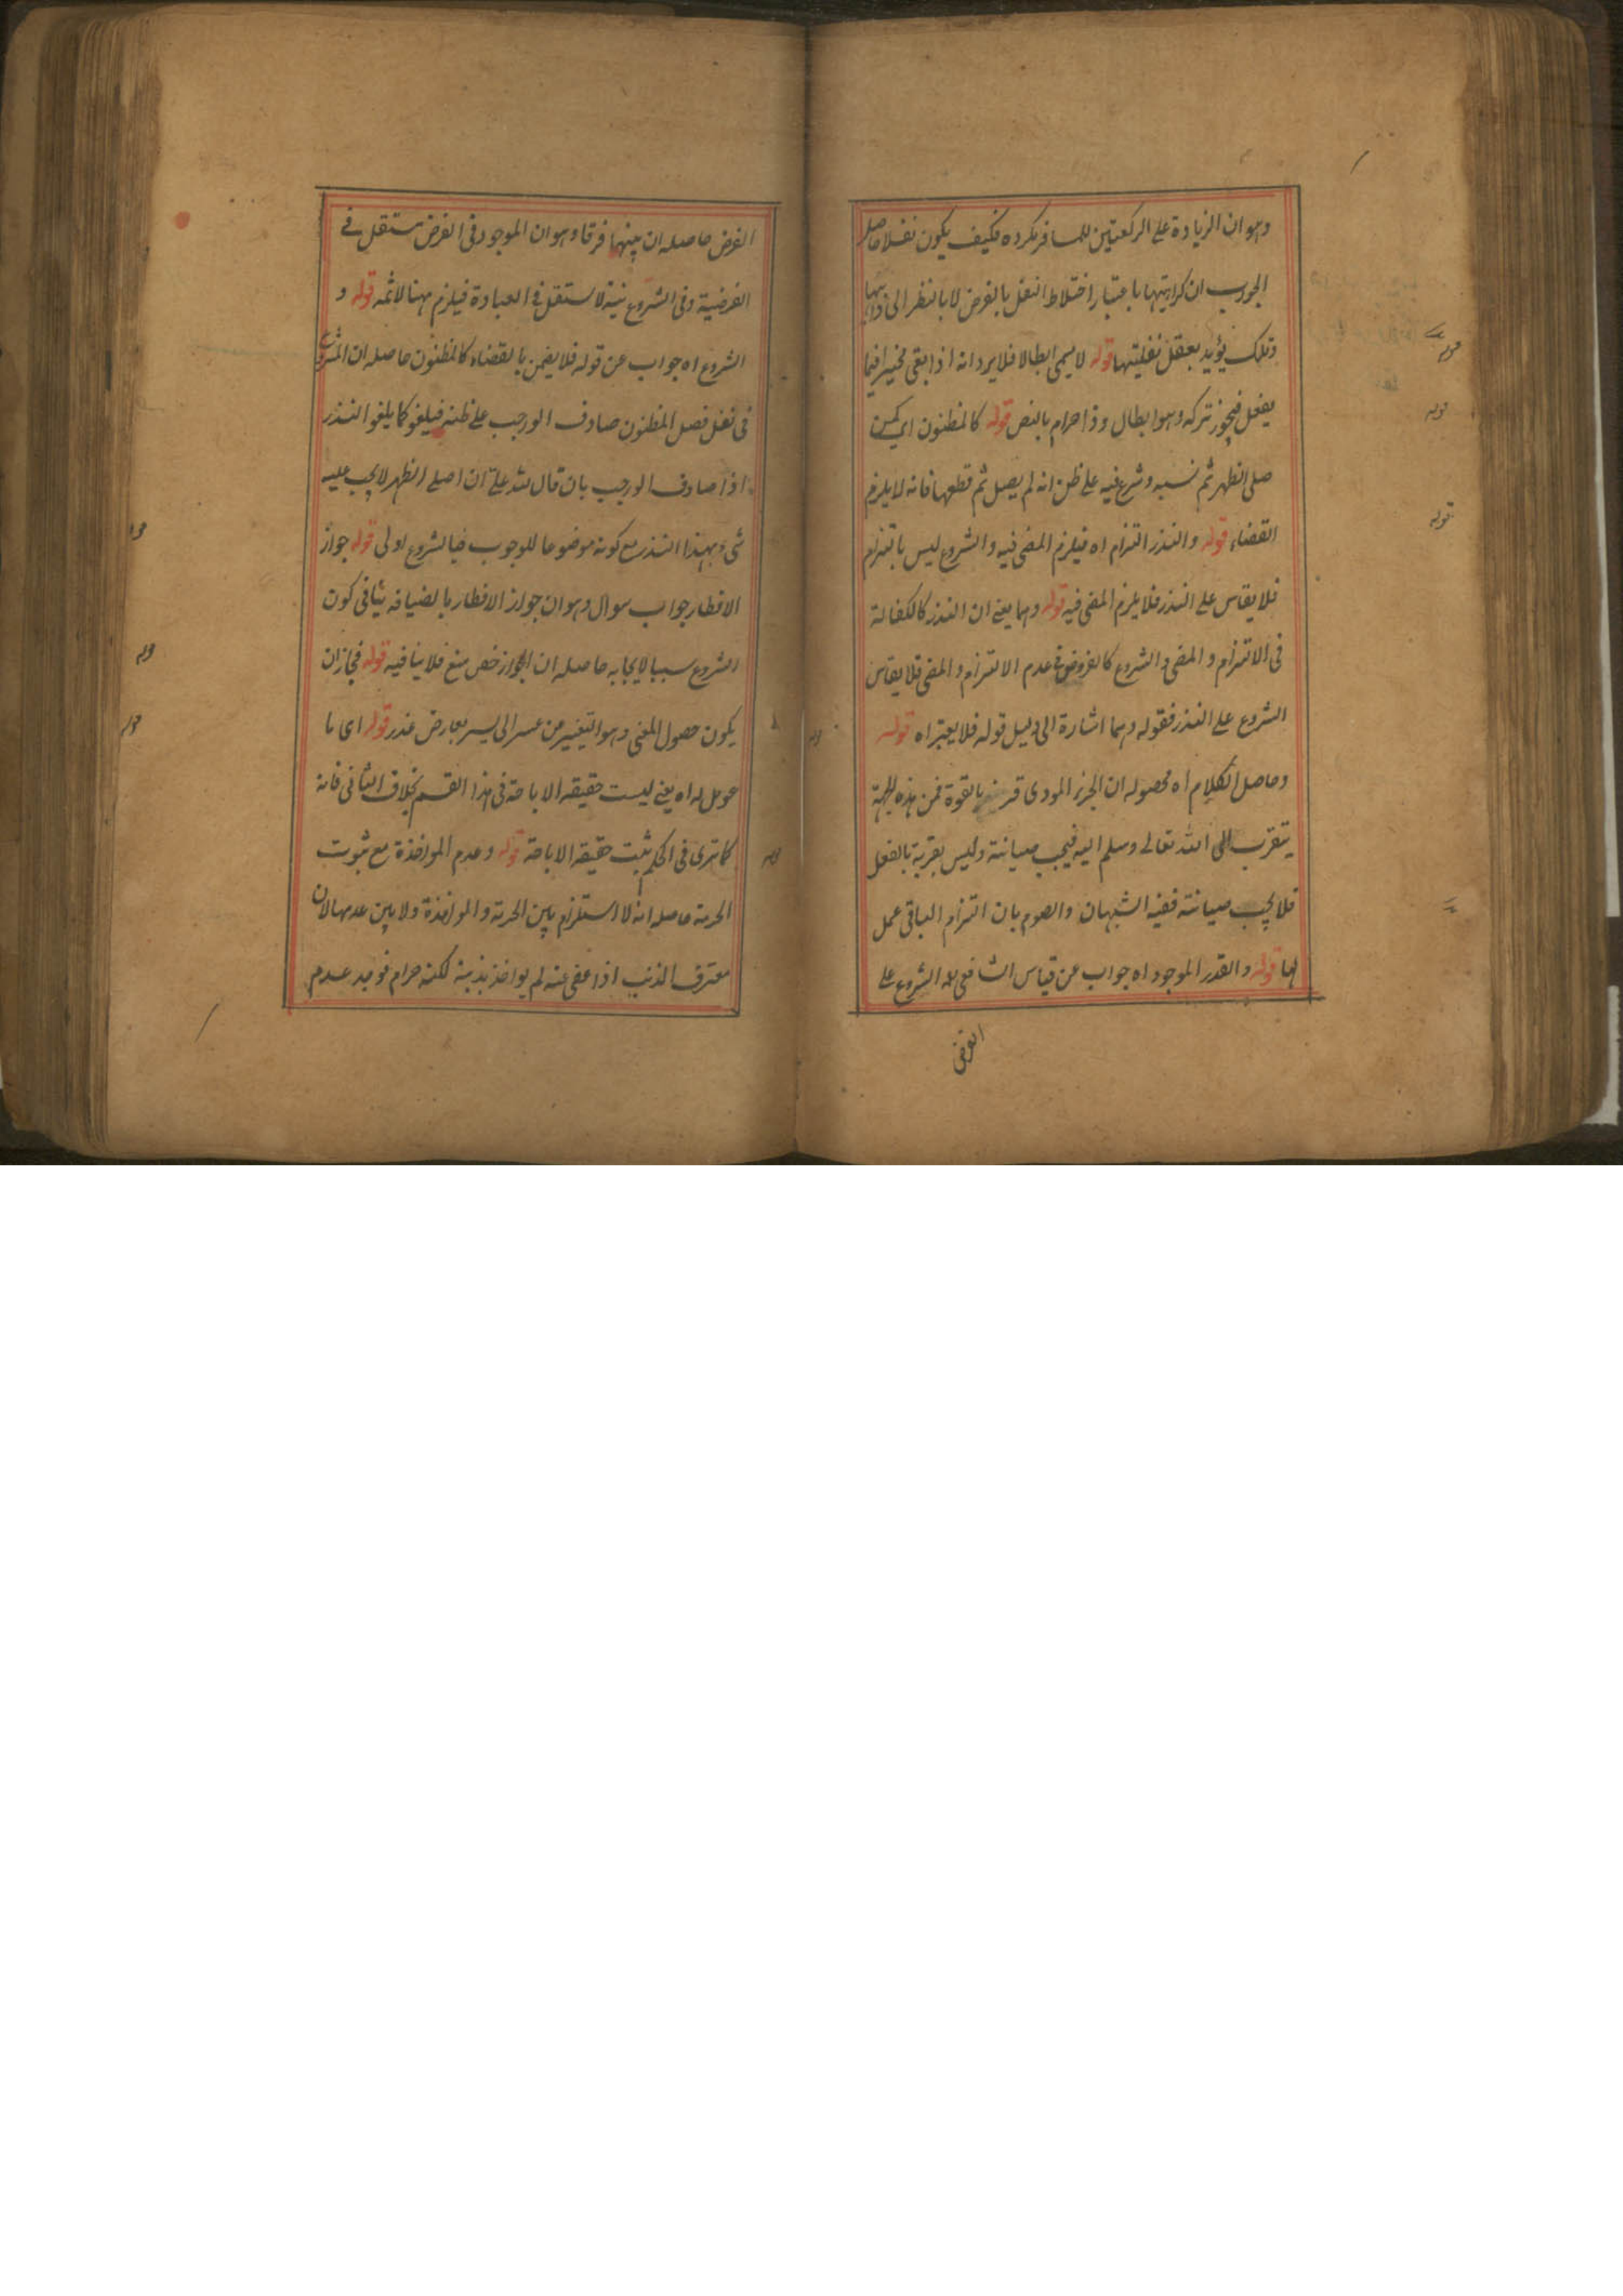 وهو ان الزيادة على الركعتين للمسافر نكرده فكيف يكون نفلا حاصل
الجواب ان كراهيتها باعتبار اختلاط النفل بالفرض لا بالنظر الى ذاتها
وتلك يؤيد بعقل نفليتها قوله لا يسمى ابطالا فلا يرد انه اذا بقى مخيرا فيما
يفعل فيجوز تركه وهو ابطال وذا حرام بالنص قوله كالمظنون اى كمن
صلى الظهر ثم نسيه وشرع فيه على ظن انه لم يصل ثم قطعها فانه لا يلزم
القضاء قوله والنذر التزام اه فيلزم المضى فيه والشروع ليس بالتزام
فلا يقاس على النذر فلا يلزم المضى فيه قوله وهما يعنى ان النذر كالكفالة
فى الالتزام والمضى والشروع كالفروض فى عدم الالتزام والمضى فلا يقاس
الشروع على النذر فقوله وهما اشارة الى دليل قوله فلا يعتبر اه قوله
وحاصل الكلام اه محصوله ان الجزء المودى بالقوة فمن هذه الجهة
يتقرب الى الله تعالى وسلم اليه فيجب صيانته وليس بقربة بالفعل
فلا يجب صيانته ففيه الشبهان والصوم بان التزام الباقى عمل
لها قوله والقدر الموجود اه جواب عن قياس الشافعى رح الشروع على
الفرض
الفرض حاصله ان بينهما فرقا وهو ان الموجود فى الفرض مستقل فى
الفرضية وفى الشروع نية لا ستقل فى العبادة فيلزم هنا لا ثمه قوله و
الشروع اه جواب عن قوله فلا يضمن بالقضاء كالمظنون حاصله ان الشروع
فى نفل فصل المظنون صادف الواجب على ظنه فيلغو كما يلغو النذر
اذا صادف الواجب بان قال لله على ان اصلى الظهر لا يجب عليه
شىء بهذا النذر مع كونه موضوعا للوجوب فبالشروع اولى قوله جواز
الافطار جواب سوال وهو ان جواز الافطار بالضيافة ينافى كون
الشروع سببا لايجابه حاصله ان الجواز خص منع فلا ينافيه قوله فجاز ان
يكون حصول المعنى وهو التغيير من عسر الى يسر بعارض عذر قوله اى ما
عومل له اه يعنى ليست حقيقة الاباحة فى هذا القسم بخلاف الثانى فانه
كما ترى فى الحكم يثبت حقيقة الاباحة قوله وعدم المواخذة مع ثبوت
الحرمة حاصله انه لا استلزام بين الحرمة والمواخذة ولا بين عدمها لان
معترف الذنب اذا عفى عنه لم يواخذ بذنبه لكنه حرام فوجد عدم